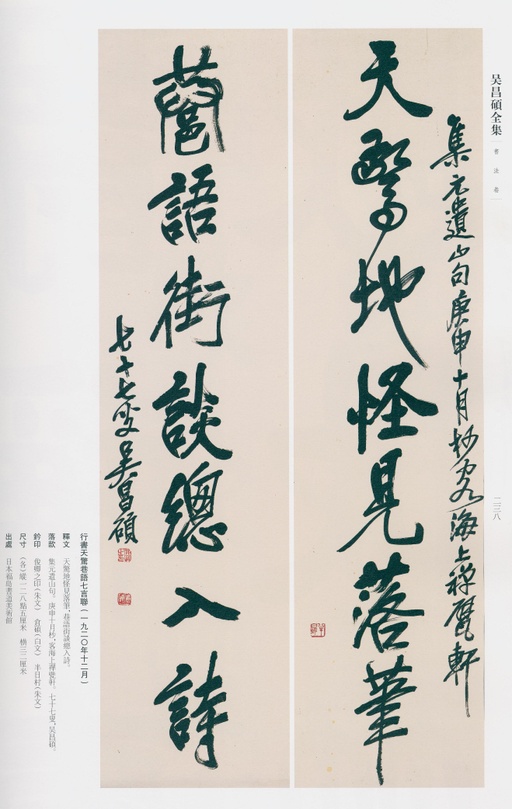 吴昌碩全集
書法卷
二三八
集元遺山句庚申十月杪客海上禅甓軒
天驚地怪見落筆
巷語街談總入詩
七十七叟吴昌碩
行書天驚巷語七言聯（一九二〇年十二月）
釋文　天驚地怪見落筆，巷語街談總入詩。
落款　集元遺山句。庚申十月杪，客海上禅甓軒。七十七叟，吴昌碩。
鈐印　俊卿之印（朱文）　倉碩（白文）　半日村（朱文）
尺寸　（各）縱一二八點五厘米　橫三二厘米
出處　日本福島書道美術館